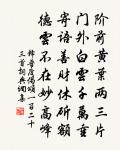 阶前黄叶两三片
门外白云千万重
寄语善财休斫额
德云不在妙高峰
释普度偈颂一百二十
三首词典网集